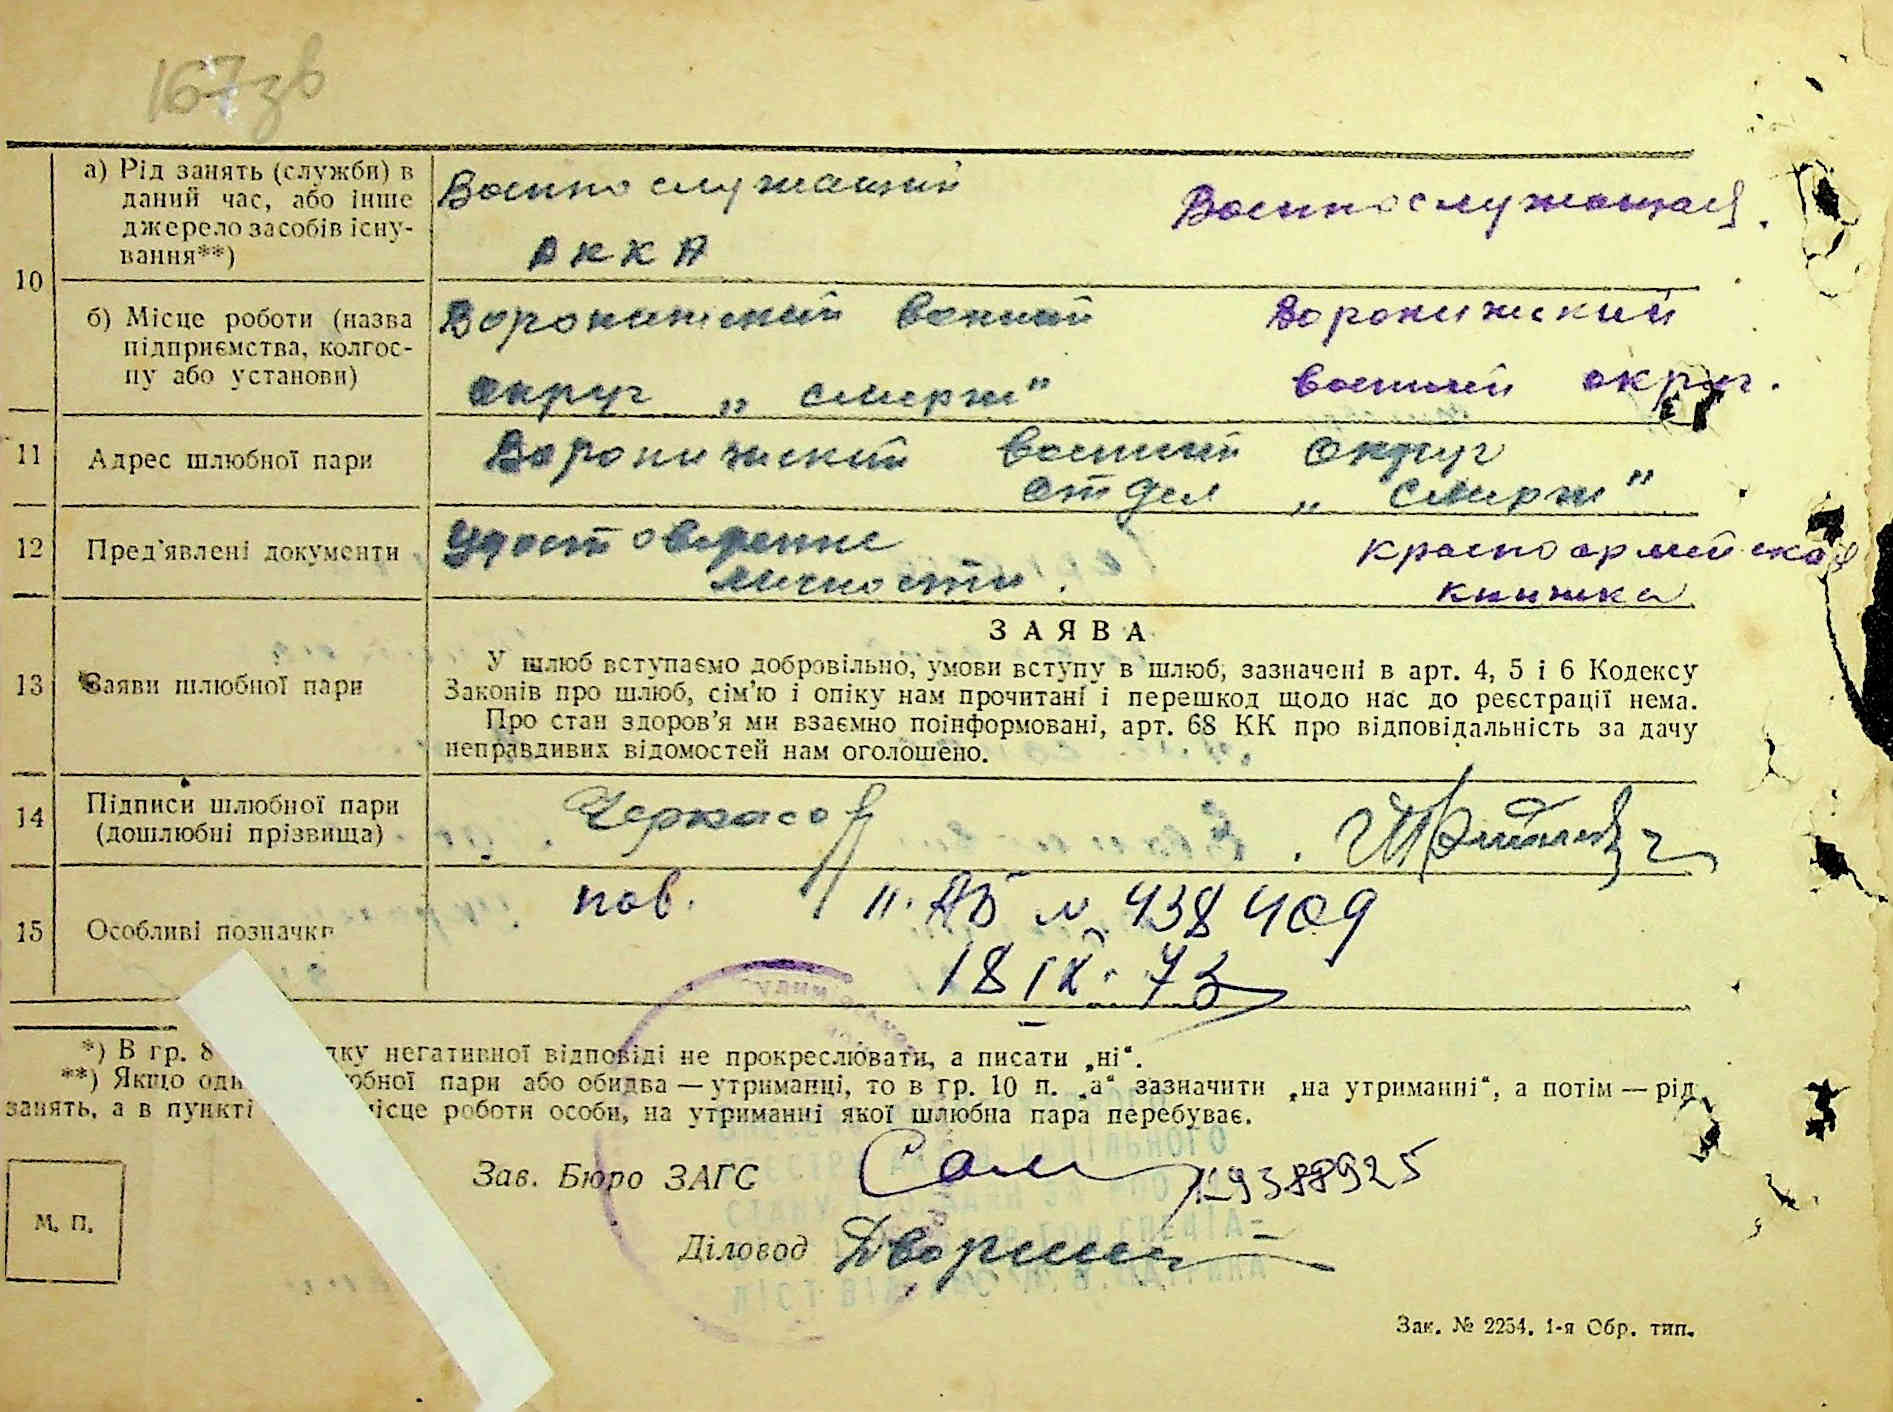 167зв
10
а) Рід занять (служби) в
даний час, або інше
джерело засобів існу-
вання**)
Военнослужащий
РККА
Военнослужащая.
б) Місце роботи (назва
підприємства, колгос-
пу або установи)
Воронижский воений
округ „смерш"
Воронижский
военный округ.
11
Адрес шлюбної пари
Воронижский военний округ
отдел „смерш"
12
Пред'явлені документи
Удостоверение
личности.
красноармейская
книжка
13
Заяви шлюбної пари
ЗАЯВА
У шлюб вступаємо добровільно, умови вступу в шлюб, зазначені в арт. 4, 5 і 6 Кодексу
Законів про шлюб, сім'ю і опіку нам прочитані і перешкод щодо нас до реєстрації нема.
Про стан здоров'я ми взаємно поінформовані, арт. 68 КК про відповідальність за дачу
неправдивих відомостей нам оголошено.
14
Підписи шлюбної пари
(дошлюбні прізвища)
Черкасов
15
Особливі позначки
пов. II. АБ № 438409
18 IX. 73
*) В гр. 8 дку негативної відповіді не прокреслювати, а писати „ні“.
**) Якщо оди юбної пари або обидва — утриманці, то в гр. 10 п. „а“ зазначити „на утриманні“, а потім — рід
занять, а в пункті місце роботи особи, на утриманні якої шлюбна пара перебуває.
М. П.
Зав. Бюро ЗАГС
К9388925
Діловод
Зак. № 2254. 1-я Обр. тип.